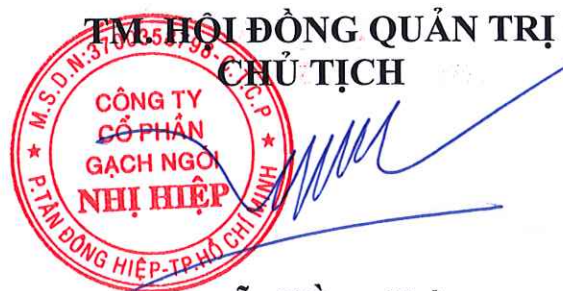 TM. HỘI ĐỒNG QUẢN TRỊ
CHỦ TỊCH
CÔNG TY
CỔ PHẦN
GẠCH NGÓI
NHỊ HIỆP
P.TÂN ĐÔNG HIỆP-TP.HỒ CHÍ MINH